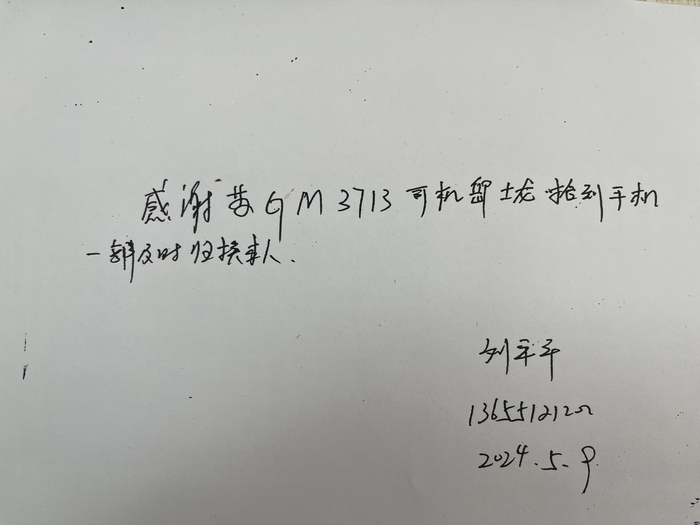 感谢苏GM3713司机邵士龙捡到手机
一部及时归换本人.
刘平平
136551212
2024.5.9